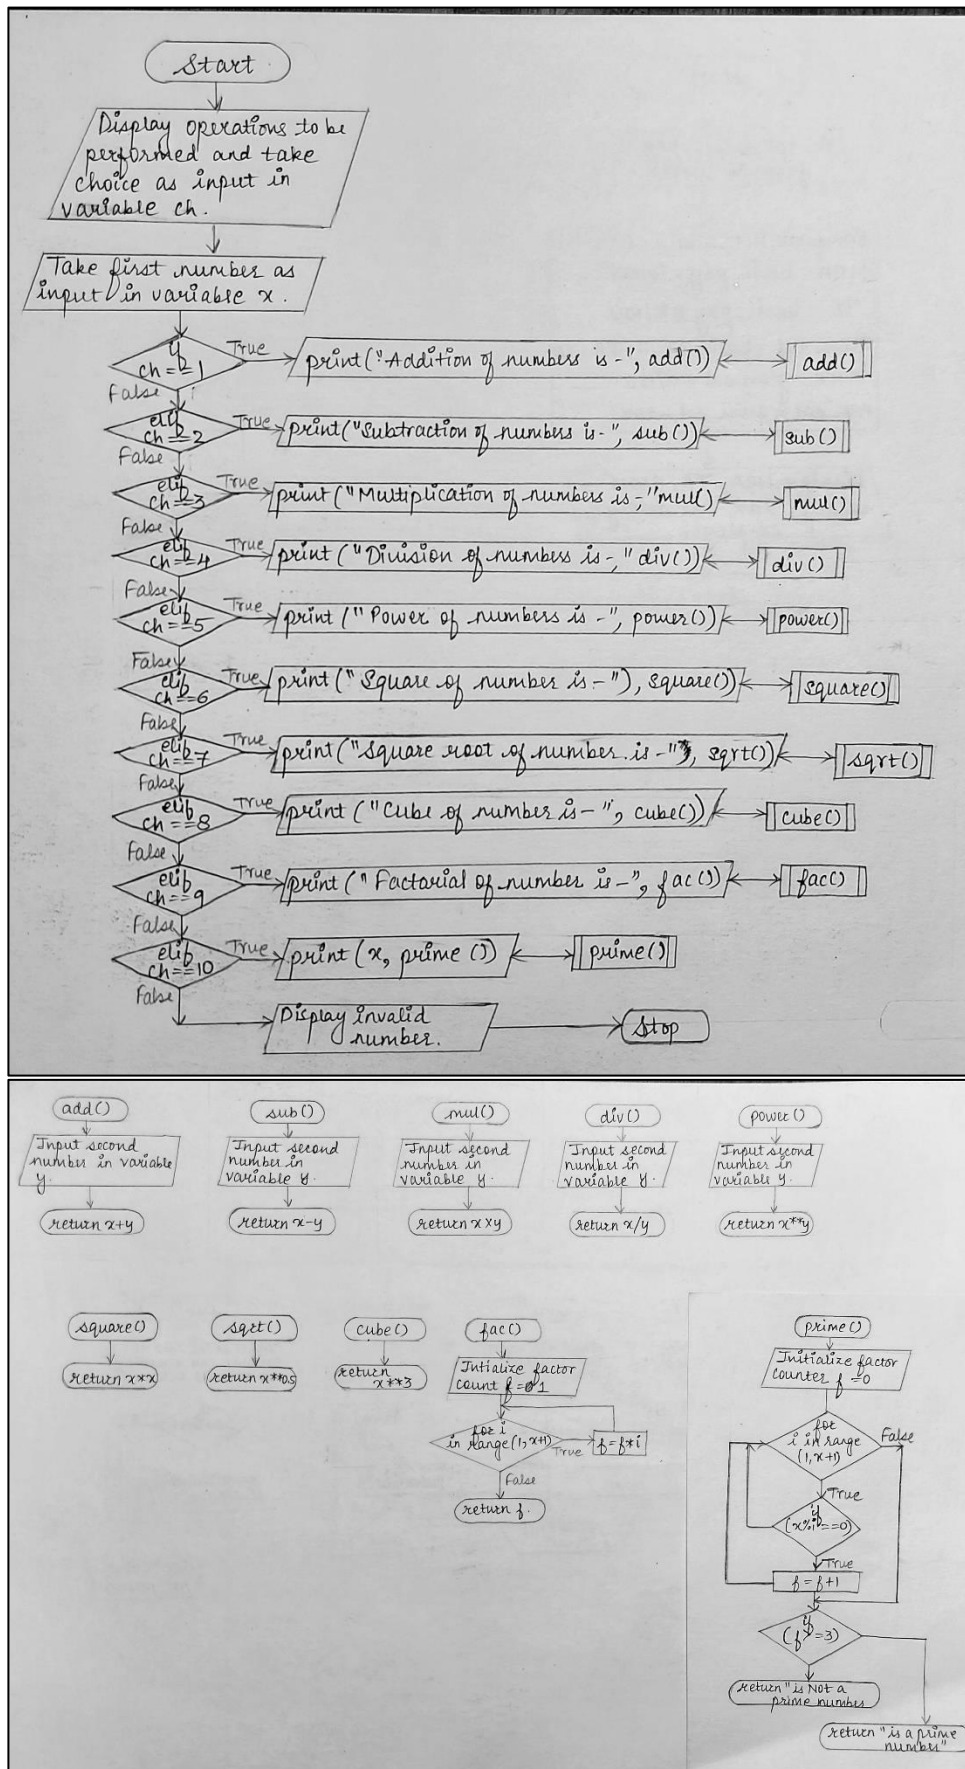 Start
Display operations to be
performed and take
choice as input in
variable ch.
Take first number as
input in variable x.
if
ch==1
True
print("Addition of numbers is-", add())
add()
False
elif
ch==2
True
print("Subtraction of numbers is-", sub())
sub()
False
elif
ch==3
True
print("Multiplication of numbers is-,"mul()
mul()
False
elif
ch==4
True
print("Division of numbers is-," div())
div()
False
elif
ch==5
True
print("Power of numbers is-", power())
power()
False
elif
ch==6
True
print("Square of number is-"), square())
square()
False
elif
ch==7
True
print("Square root of number is-", sqrt())
sqrt()
False
elif
ch==8
True
print("Cube of number is-", cube())
cube()
False
elif
ch==9
True
print("Factorial of number is-", fac())
fac()
False
elif
ch==10
True
print(x, prime())
prime()
False
Display invalid
number.
Stop
add()
Input second
number in variable
y.
return x+y
sub()
Input second
number in
variable y.
return x-y
mul()
Input second
number in
variable y.
return x×y
div()
Input second
number in
variable y.
return x/y
power()
Input second
number in
variable y.
return x**y
square()
return x*x
sqrt()
return x**0.5
cube()
return
x**3
fac()
Intialize factor
count f=1
for i
in range(1,x+1)
True
f=f*i
False
return f.
prime()
Initialize factor
counter f=0
for
i in range
(1,x+1)
False
True
if
(x%i==0)
True
f=f+1
if
(f>=3)
return "is Not a
prime number
return "is a prime
number"